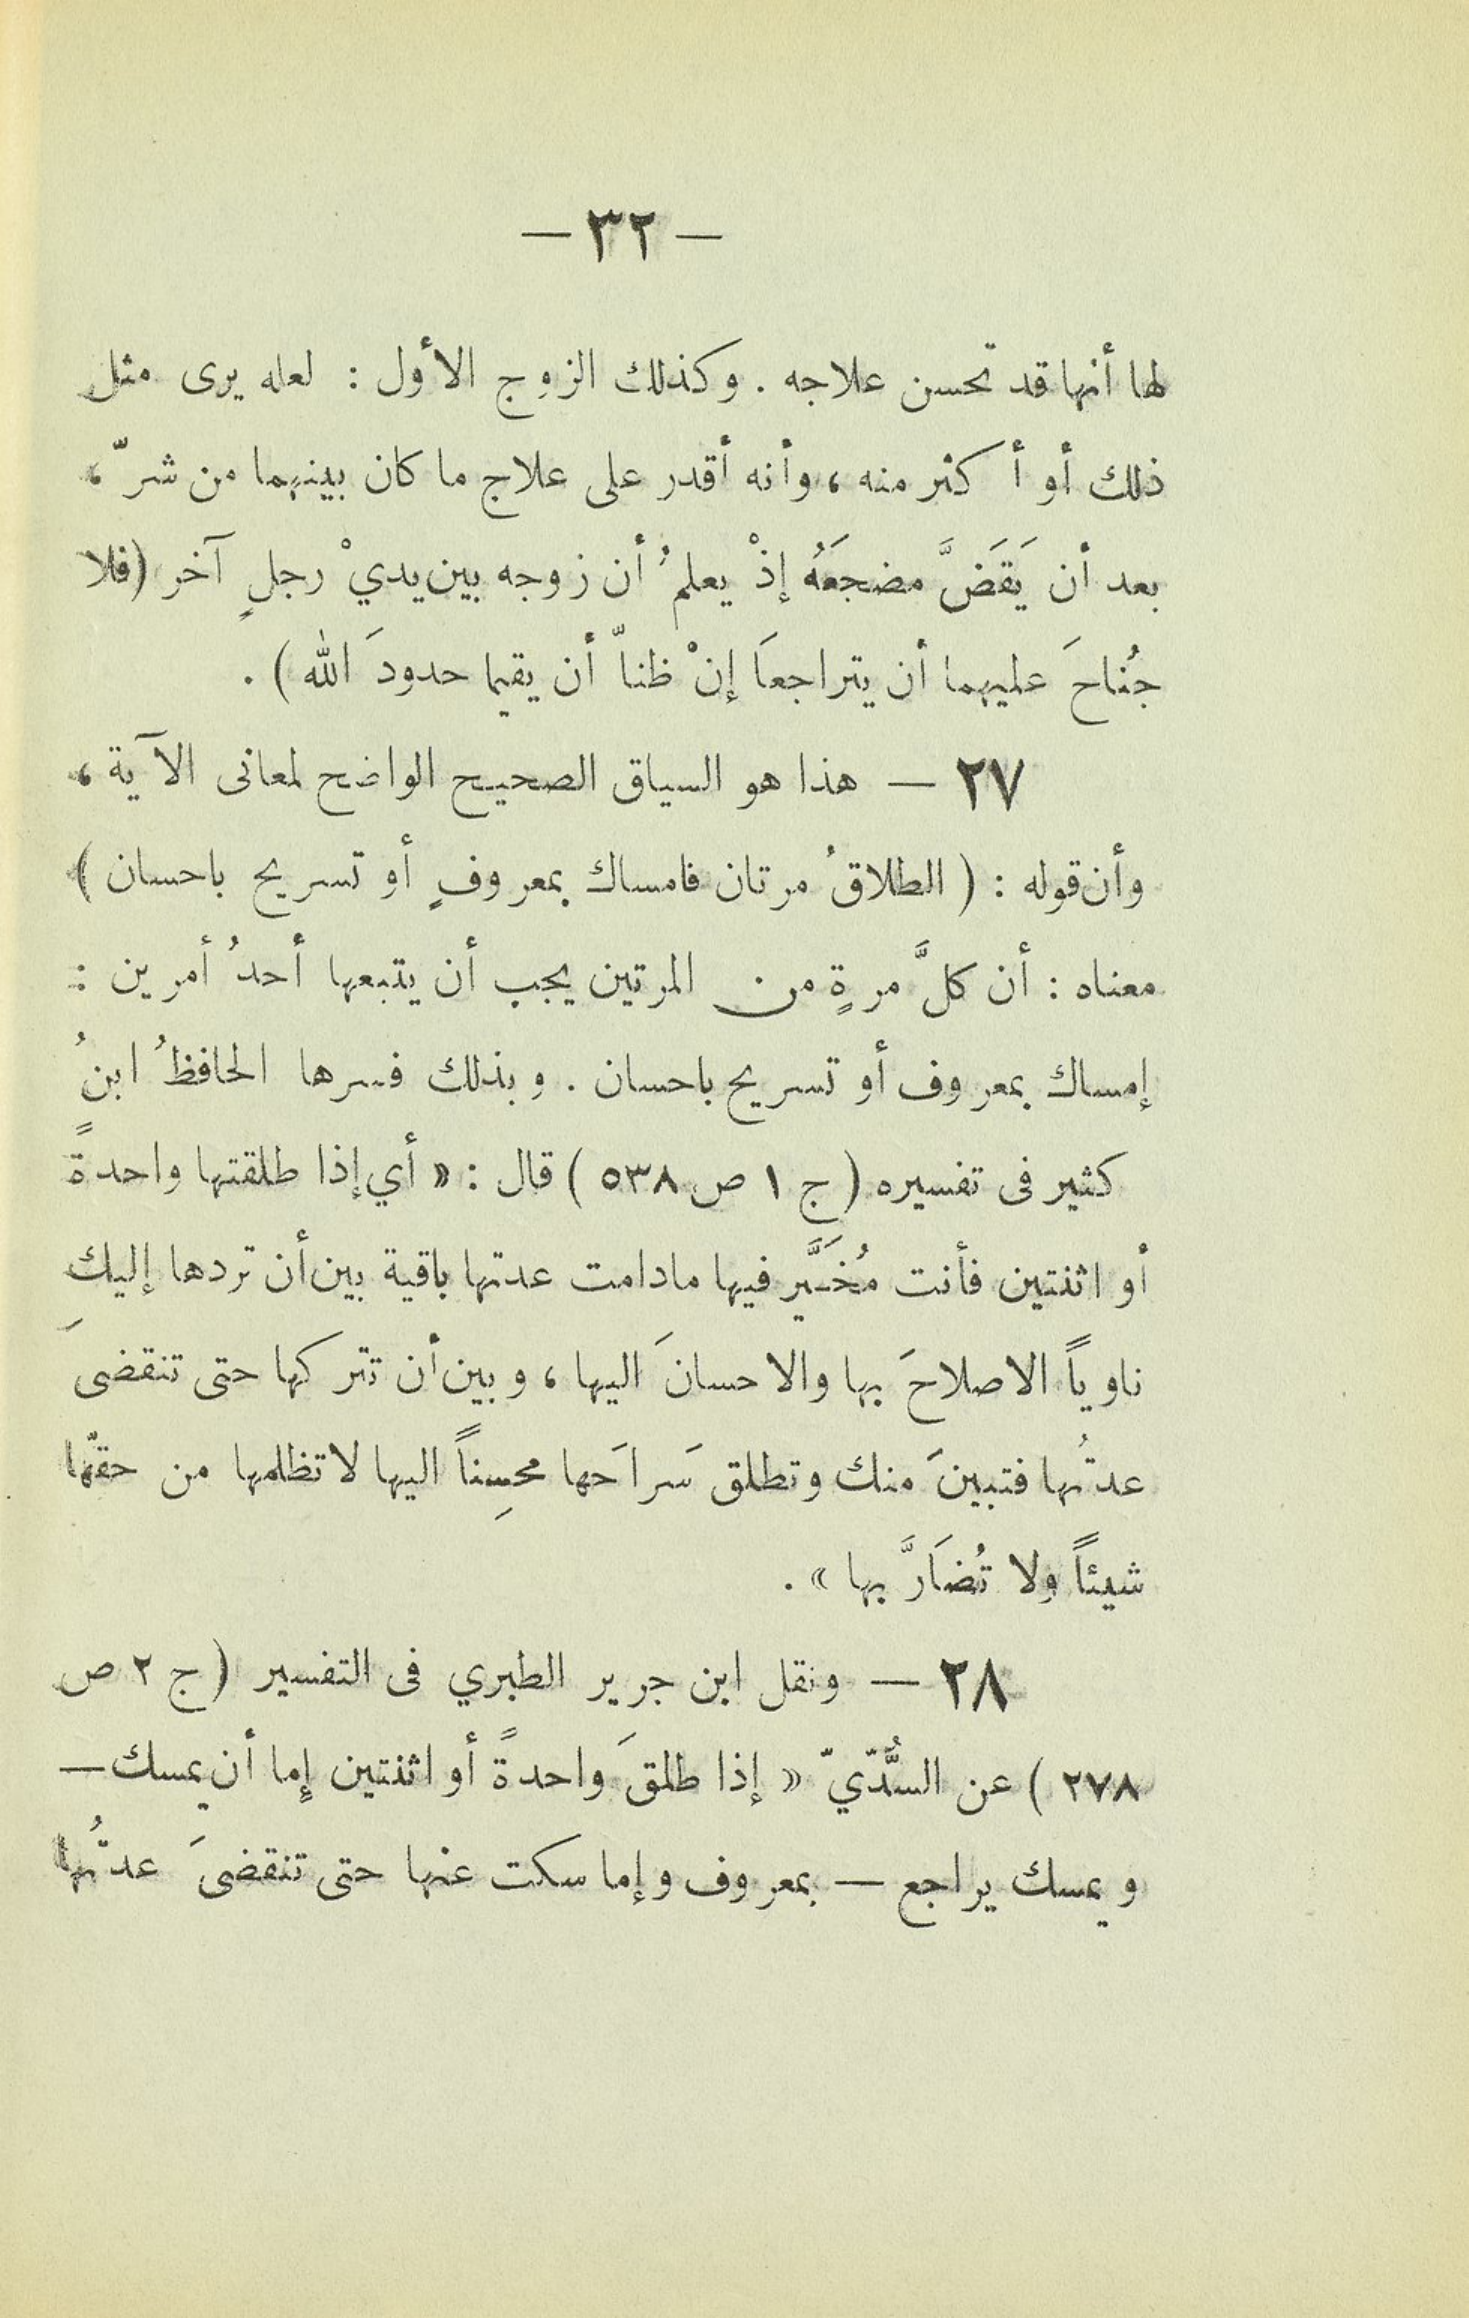 — ٣٢ —
لها أنها قد تحسن علاجه . وكذلك الزوج الأول : لعله يرى مثل
ذلك أو أكثر منه ، وأنه أقدر على علاج ما كان بينهما من شرّ ،
بعد أن يَقَضَّ مضجَعَهُ إذْ يعلمُ أن زوجه بين يديْ رجلٍ آخر (فلا
جُناحَ عليهما أن يتراجعَا إنْ ظنّا أن يقيما حدودَ الله ) .
٢٧ — هذا هو السياق الصحيح الواضح لمعانى الآية ،
وأن قوله : ( الطلاقُ مرتان فامساك بمعروفٍ أو تسريح باحسان )
معناه : أن كلَّ مرةٍ من المرتين يجب أن يتبعها أحدُ أمرين :
إمساك بمعروف أو تسريح باحسان . وبذلك فسرها الحافظُ ابنُ
كثير فى تفسيره ( ج ١ ص ٥٣٨ ) قال : « أي إذا طلقتها واحدةً
أو اثنتين فأنت مُخَيَّر فيها مادامت عدتها باقية بين أن تردها إليك
ناوياً الاصلاحَ بها والاحسانَ اليها ، وبين أن تتركها حتى تنقضىَ
عدتُها فتبينَ منك وتطلق سَراحَها محسِناً اليها لا تظلمها من حقّها
شيئاً ولا تُضَارَّ بها » .
٢٨ — ونقل ابن جرير الطبري فى التفسير ( ج ٢ ص
٢٧٨ ) عن السُّدّيّ « إذا طلقَ واحدةً أو اثنتين إما أن يمسك —
ويمسك يراجع — بمعروف وإما سكت عنها حتى تنقضىَ عدتُها